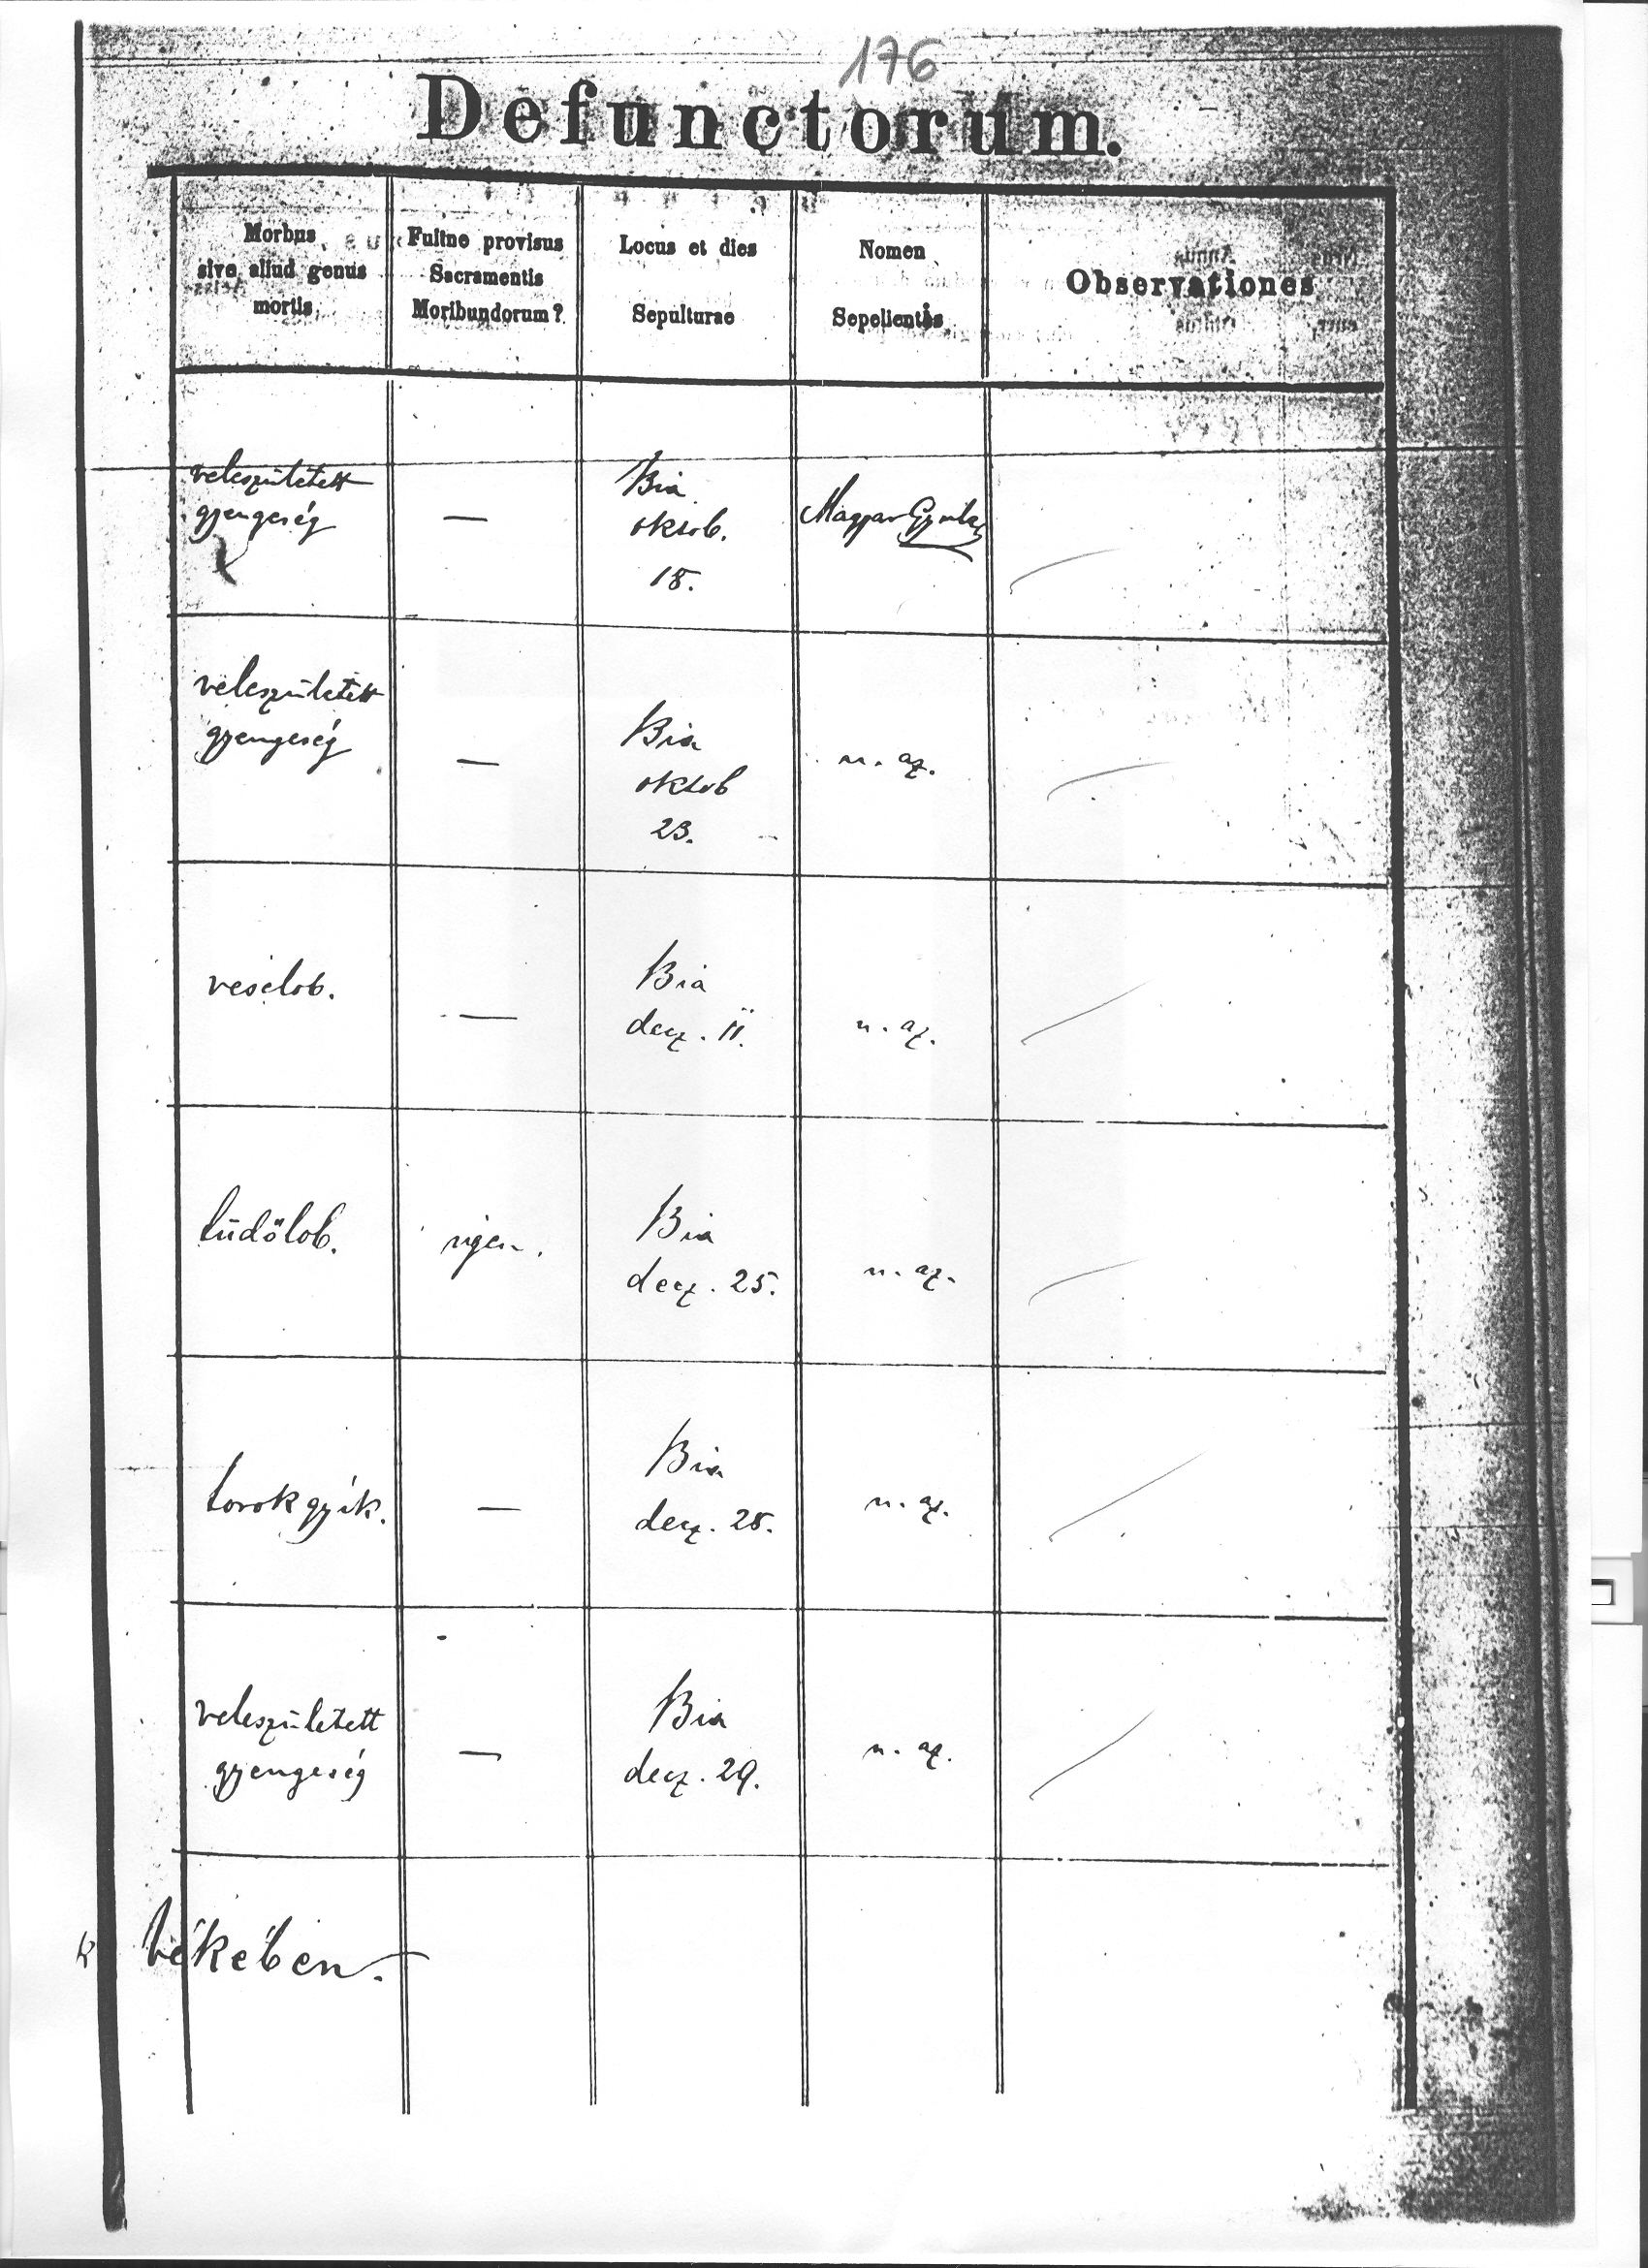 176
Defunctorum.
Morbus
sive aliud genus
mortis
Fuitne provisus
Sacramentis
Moribundorum?
Locus et dies
Sepulturae
Nomen
Sepelientis
Observationes
veleszületett
gyengeség
—
Bia
oktob.
18.
Magyar Gyula
veleszületett
gyengeség
—
Bia
oktob
23.
u. az.
veselob.
—
Bia
decz. 11.
u. az.
tüdőlob.
igen.
Bia
decz. 25.
u. az.
torokgyík.
—
Bia
decz. 28.
u. az.
veleszületett
gyengeség
—
Bia
decz. 29.
u. az.
békében.